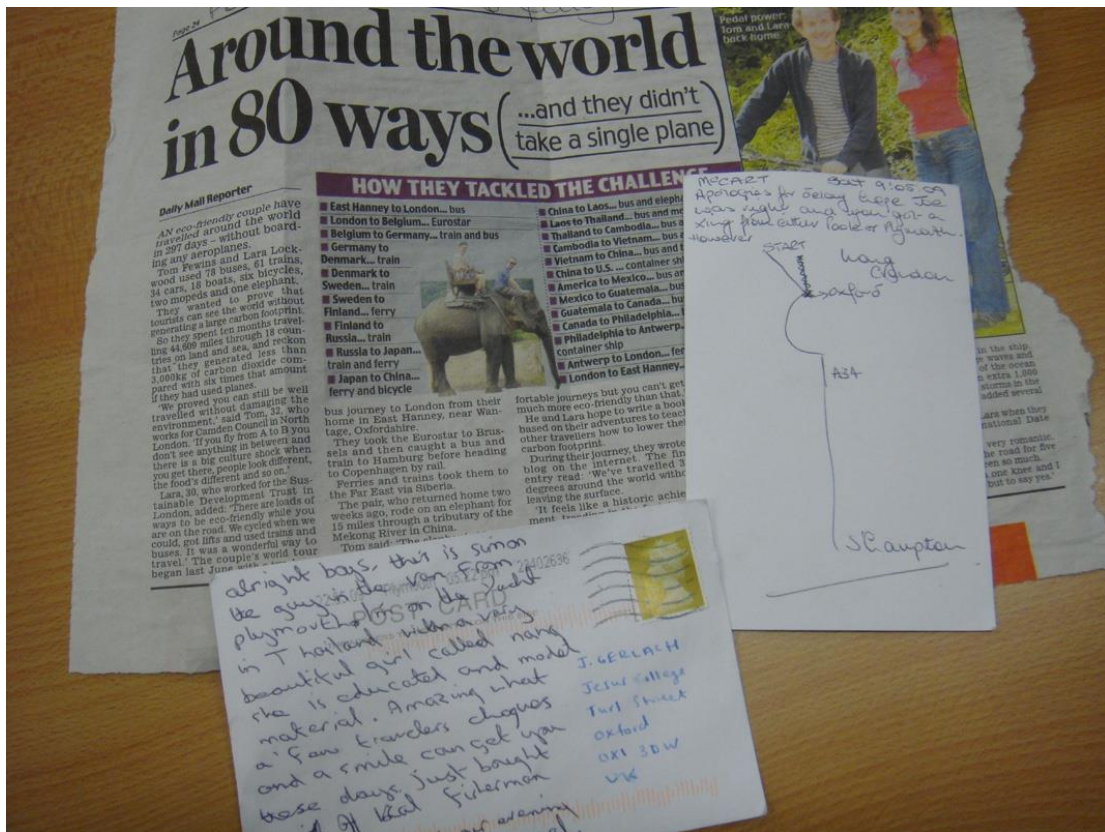 Page 24
Around the world
in 80 ways
...and they didn't
take a single plane
Pedal power:
Tom and Lara
back home
Daily Mail Reporter
AN eco-friendly couple have
travelled around the world
in 297 days – without board-
ing any aeroplanes.
Tom Fewins and Lara Lock-
wood used 78 buses, 61 trains,
34 cars, 18 boats, six bicycles,
two mopeds and one elephant.
They wanted to prove that
tourists can see the world without
generating a large carbon footprint.
So they spent ten months travel-
ling 44,609 miles through 18 coun-
tries on land and sea, and reckon
that they generated less than
3,000kg of carbon dioxide com-
pared with six times that amount
if they had used planes.
'We proved you can still be well
travelled without damaging the
environment,' said Tom, 32, who
works for Camden Council in North
London. 'If you fly from A to B you
don't see anything in between and
there is a big culture shock when
you get there, people look different,
the food's different and so on.'
Lara, 30, who worked for the Sus-
tainable Development Trust in
London, added: 'There are loads of
ways to be eco-friendly while you
are on the road. We cycled when we
could, got lifts and used trains and
buses. It was a wonderful way to
travel.' The couple's world tour
began last June with a
HOW THEY TACKLED THE CHALLENGE
East Hanney to London... bus
London to Belgium... Eurostar
Belgium to Germany... train and bus
Germany to
Denmark... train
Denmark to
Sweden... train
Sweden to
Finland... ferry
Finland to
Russia... train
Russia to Japan...
train and ferry
Japan to China...
ferry and bicycle
China to Laos... bus and eleph
Laos to Thailand... bus and mo
Thailand to Cambodia... bus a
Cambodia to Vietnam... bus a
Vietnam to China... bus and t
China to U.S. ... container shi
America to Mexico... bus an
Mexico to Guatemala... bu
Guatemala to Canada... bu
Canada to Philadelphia... b
Philadelphia to Antwerp..
container ship
Antwerp to London... fer
London to East Hanney...
bus journey to London from their
home in East Hanney, near Wan-
tage, Oxfordshire.
They took the Eurostar to Brus-
sels and then caught a bus and
train to Hamburg before heading
to Copenhagen by rail.
Ferries and trains took them to
the Far East via Siberia.
The pair, who returned home two
weeks ago, rode on an elephant for
15 miles through a tributary of the
Mekong River in China.
Tom said: 'The
fortable journeys but you can't get
much more eco-friendly than that.'
He and Lara hope to write a book
based on their adventures to teach
other travellers how to lower thei
carbon footprint.
During their journey, they wrote
blog on the internet. The fin
entry read: 'We've travelled 3
degrees around the world witho
leaving the surface.
'It feels like a historic achie
ment,
in the ship,
waves and
of the ocean
n extra 1,000
storms in the
added several
ara when they
national Date
very romantic.
he road for five
een so much.
one knee and I
but to say yes.'
McCART Sat 9.05.09
Apologies for delay hope Joe
was right and you got a
xing from either Poole or Plymouth.
However
START
Craig
Croydon
Oxford
A34
S'Hampton
Plymouth 05.22
28402696
POST CARD
alright boys, this is simon
the guy in the van from
plymouth, on the yacht
in Thailand with a very
beautiful girl called nang
she is educated and model
material. Amazing what
a few travelers cheques
and a smile can get you
these days, just bought
local fisherman
evening
J. GERLACH
Jesus College
Turl Street
Oxford
OX1 3DW
UK